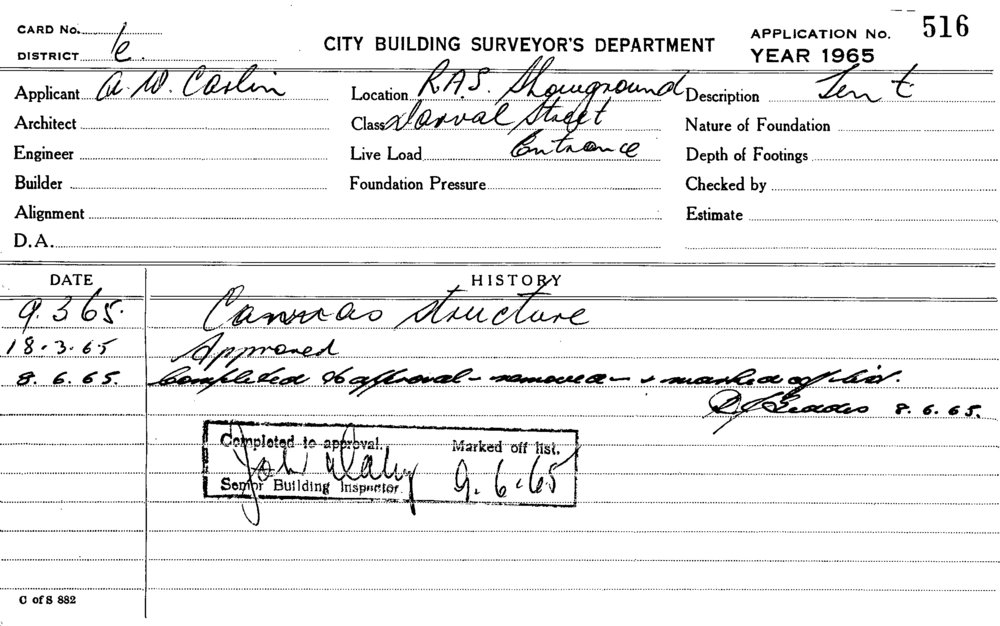 CARD No.
DISTRICT
CITY BUILDING SURVEYOR'S DEPARTMENT
APPLICATION No. 516
YEAR 1965
Applicant A. W. Carlin
Location R.A.S. Showground
Description Tent
Architect
Class Street
Nature of Foundation
Engineer
Live Load Entrance
Depth of Footings
Builder
Foundation Pressure
Checked by
Alignment
Estimate
D.A.
DATE HISTORY
9.3.65. Canvas structure
18.3.65 Approved
8.6.65. Completed to approval - removed - & marked off list.
8.6.65.
Completed to approval. Marked off list.
John 9.6.65
Senior Building Inspector.
C of S 882